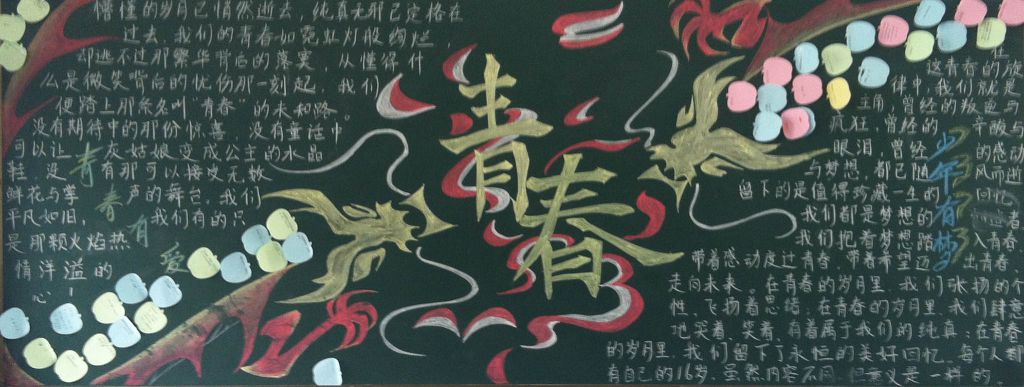 懵懂的岁月已悄然逝去，纯真无邪已定格在
过去，我们的青春如霓虹灯般绚烂，
却逃不过那繁华背后的落寞，从懂得什
么是微笑背后的忧伤那一刻起，我们
便踏上那条名叫“青春”的未知路。
没有期待中的那份惊喜，没有童话中
可以让灰姑娘变成公主的水晶
鞋，没有那可以接受无数
鲜花与掌声的舞台。我们
平凡如旧，我们有的只
是那颗火焰热
情洋溢的
心！
青春有爱
青春
这青春的旋
律中，我们就是
主角，曾经的叛逆与
疯狂，曾经的
眼泪，曾经的感动
与梦想，都已随风而逝
留下的是值得珍藏一生的回忆
我们都是梦想的
我们抱着梦想踏入青春
带着感动度过青春，带着希望迈出青春，
走向未来。在青春的岁月里，我们张扬的个
性，飞扬着思绪；在青春的岁月里，我们肆意
地哭着，笑着，有着属于我们的纯真；在青春
的岁月里，我们留下了永恒的美好回忆。每个人都
有自己的16岁，虽然内容不同，但意义是一样的。
少年有梦